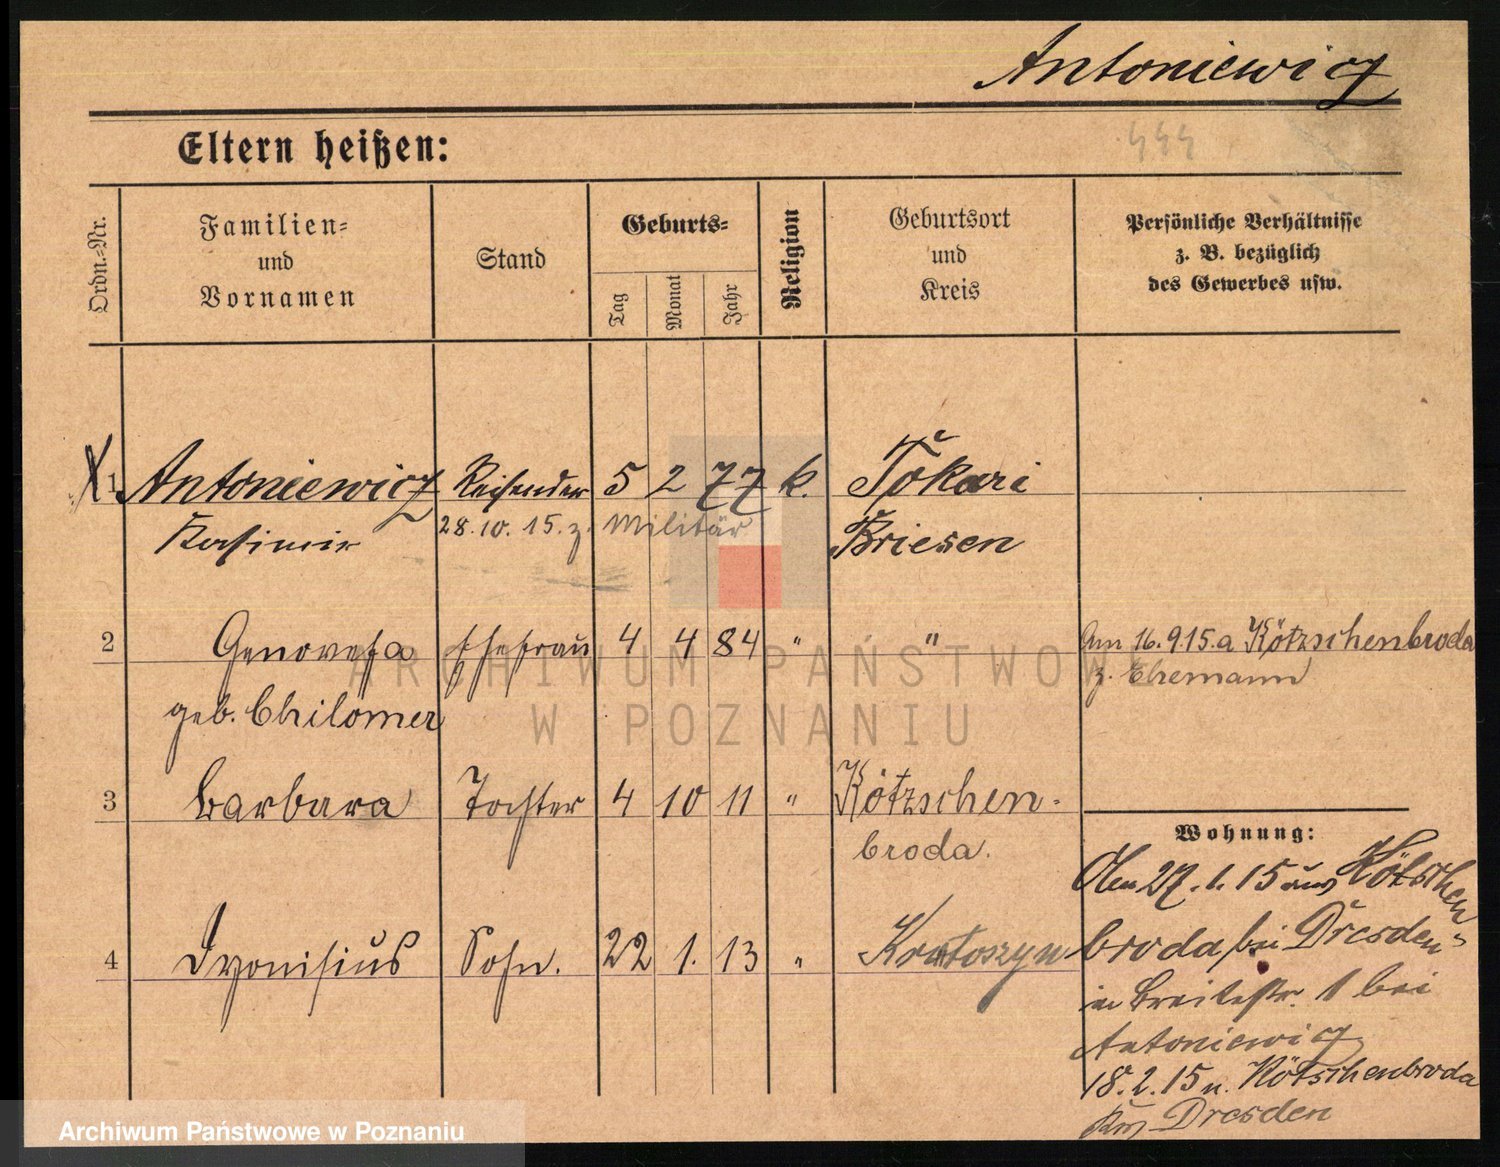 Antoniewicz
444
Eltern heißen:
Ordn.-Nr.
Familien- und Vornamen
Stand
Geburts-
Tag
Monat
Jahr
Religion
Geburtsort und Kreis
Persönliche Verhältnisse
z. B. bezüglich
des Gewerbes usw.
1 Antoniewicz Reisender 5 2 77 k. Tokari
Kasimir 28.10.15. z. Militär Briesen
2 Genovefa Ehefrau 4 4 84 " " Am 16.9.15. a Kötzschenbroda
z. Ehemann
geb. Chilomer
3 Barbara Tochter 4 10 11 " Kötzschen-
broda.
Wohnung:
27.1.15 aus Kötschen-
4 Dyonisius Sohn. 22 1. 13 " Krotoszyn
broda bei Dresden
in Breitestr. 1 bei
Antoniewicz
18.2.15 n. Kötschenbroda
Dresden
ARCHIWUM PAŃSTWOWE
W POZNANIU
Archiwum Państwowe w Poznaniu